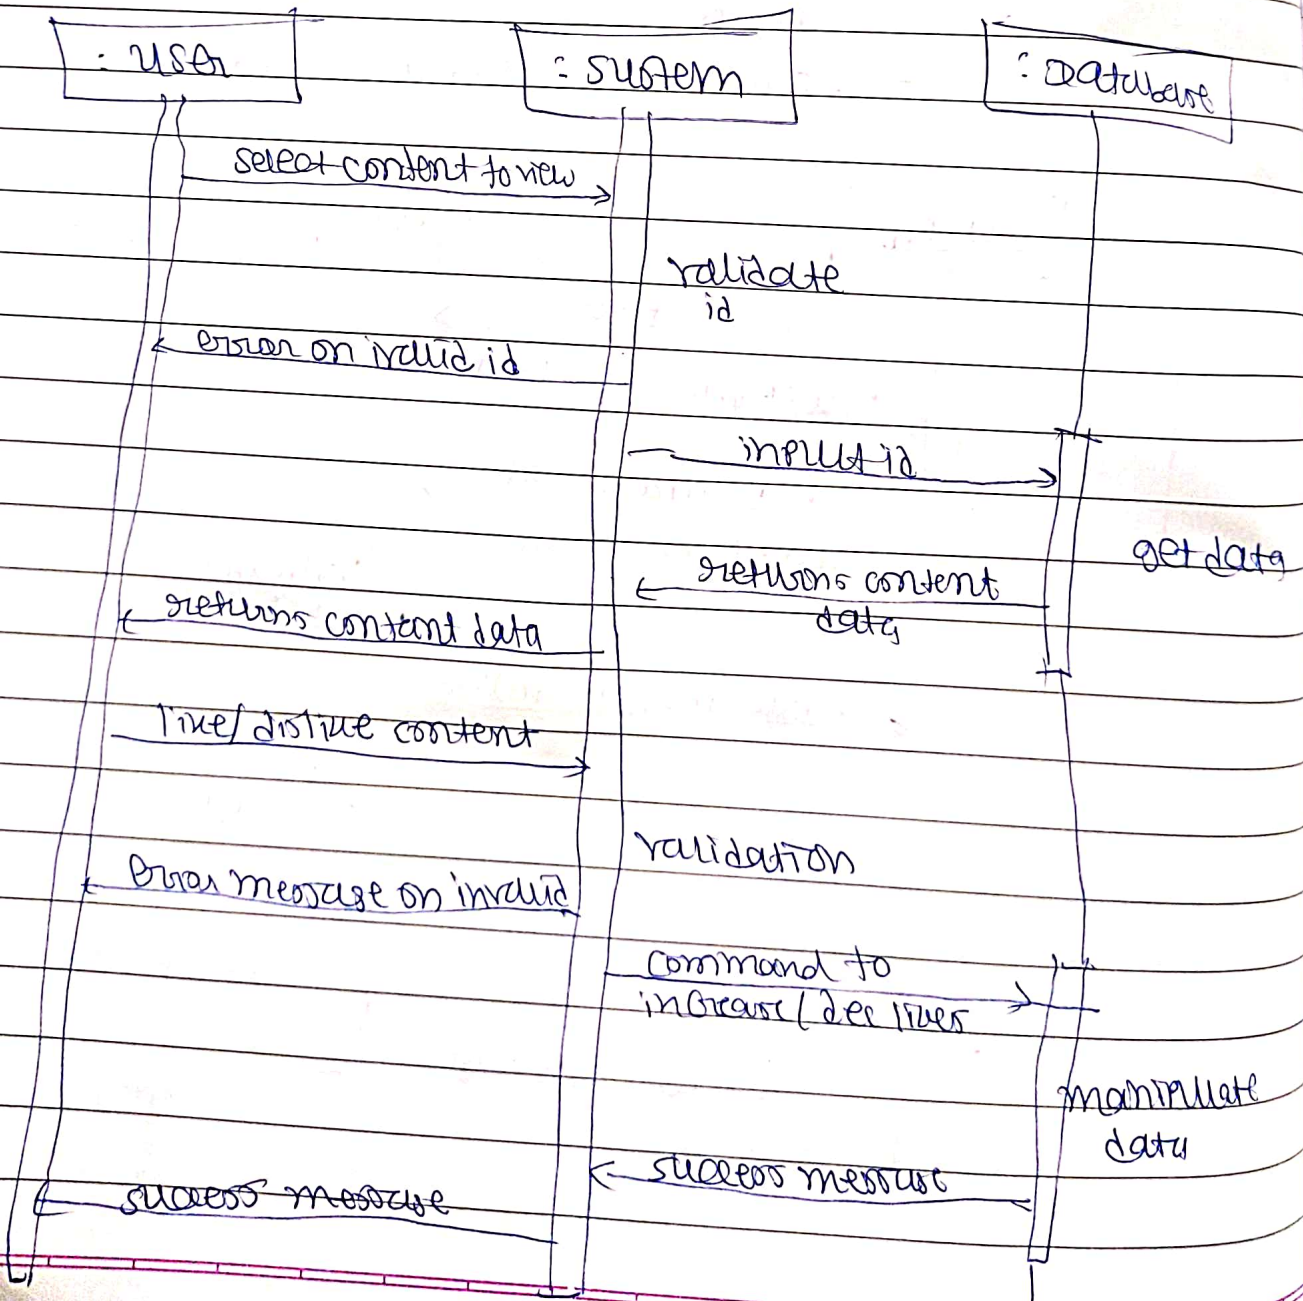 : user
: system
: Database
select content to view
validate
id
error on invalid id
input id
get data
returns content
data
returns content data
like/dislike content
validation
Error message on invalid
command to
increase/dec likes
manipulate
data
success message
success message